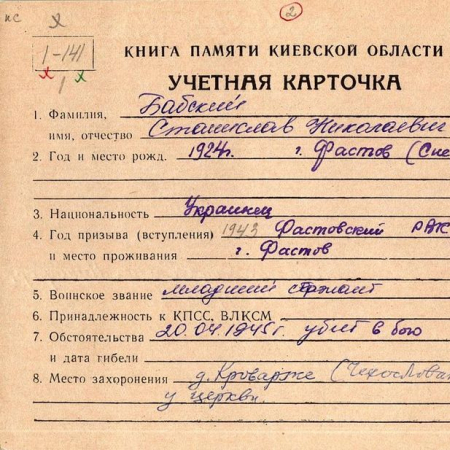 пс
2
1-141
1
КНИГА ПАМЯТИ КИЕВСКОЙ ОБЛАСТИ
УЧЕТНАЯ КАРТОЧКА
1. Фамилия, Бабский
имя, отчество Станислав Николаевич
2. Год и место рожд. 1924г. г. Фастов (Сне
3. Национальность Украинец
4. Год призыва (вступления) 1943 Фастовский РВК
и место проживания г. Фастов
5. Воинское звание младший сержант
6. Принадлежность к КПСС, ВЛКСМ
7. Обстоятельства 20.04.1945г. убит в бою
и дата гибели
8. Место захоронения д. Кроварже (Чехослова
у церкви.